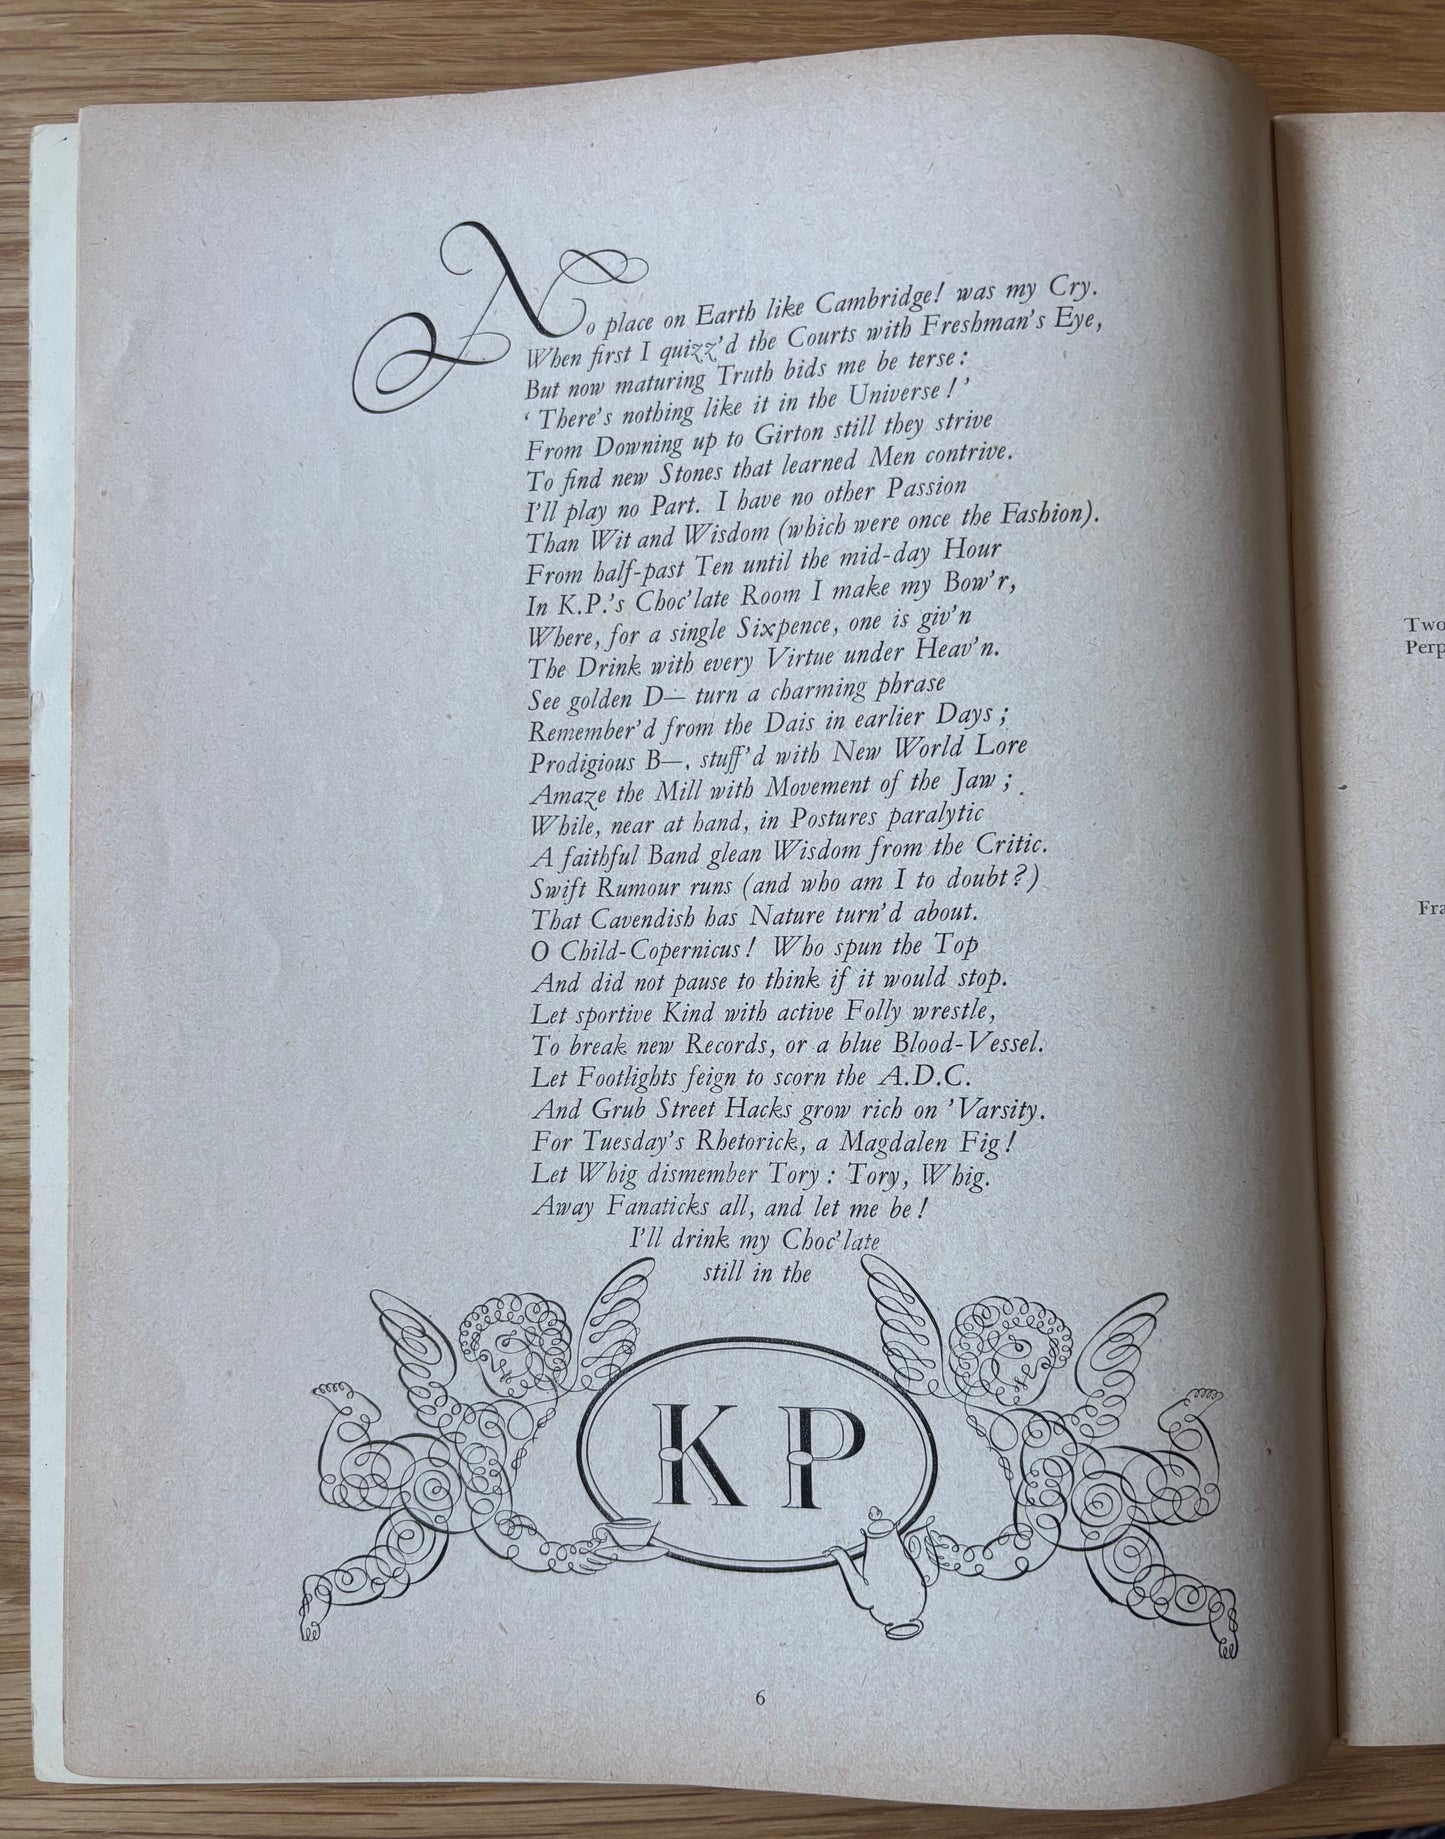 No place on Earth like Cambridge! was my Cry.
When first I quizz'd the Courts with Freshman's Eye,
But now maturing Truth bids me be terse:
‘There's nothing like it in the Universe!’
From Downing up to Girton still they strive
To find new Stones that learned Men contrive.
I'll play no Part. I have no other Passion
Than Wit and Wisdom (which were once the Fashion).
From half-past Ten until the mid-day Hour
In K.P.'s Choc'late Room I make my Bow'r,
Where, for a single Sixpence, one is giv'n
The Drink with every Virtue under Heav'n.
See golden D— turn a charming phrase
Remember'd from the Dais in earlier Days;
Prodigious B—, stuff'd with New World Lore
Amaze the Mill with Movement of the Jaw;
While, near at hand, in Postures paralytic
A faithful Band glean Wisdom from the Critic.
Swift Rumour runs (and who am I to doubt?)
That Cavendish has Nature turn'd about.
O Child-Copernicus! Who spun the Top
And did not pause to think if it would stop.
Let sportive Kind with active Folly wrestle,
To break new Records, or a blue Blood-Vessel.
Let Footlights feign to scorn the A.D.C.
And Grub Street Hacks grow rich on 'Varsity.
For Tuesday's Rhetorick, a Magdalen Fig!
Let Whig dismember Tory: Tory, Whig.
Away Fanaticks all, and let me be!
I'll drink my Choc'late
still in the
KP
6
Two